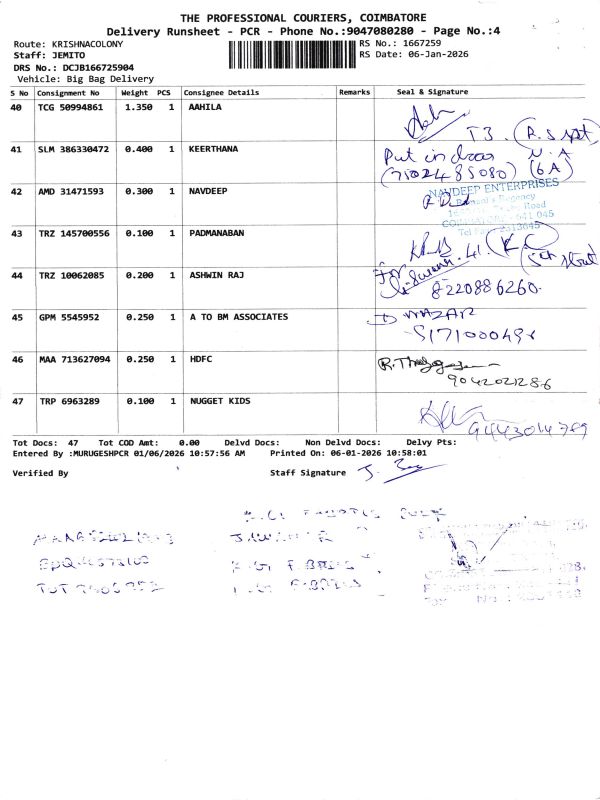 THE PROFESSIONAL COURIERS, COIMBATORE
Delivery Runsheet - PCR - Phone No.:9047080280 - Page No.:4
Route: KRISHNACOLONY RS No.: 1667259
Staff: JEMITO RS Date: 06-Jan-2026
DRS No.: DCJB166725904
Vehicle: Big Bag Delivery
S No Consignment No Weight PCS Consignee Details Remarks Seal & Signature
40 TCG 50994861 1.350 1 AAHILA
T3.
41 SLM 386330472 0.400 1 KEERTHANA Put in door N.A
(7502485080) (6A)
42 AMD 31471593 0.300 1 NAVDEEP NAVDEEP ENTERPRISES
Regency
Road
641 045
43 TRZ 145700556 0.100 1 PADMANABAN
44 TRZ 10062085 0.200 1 ASHWIN RAJ For
8220886260.
45 GPM 5545952 0.250 1 A TO BM ASSOCIATES
46 MAA 713627094 0.250 1 HDFC
9042021286
47 TRP 6963289 0.100 1 NUGGET KIDS
9443014789
Tot Docs: 47 Tot COD Amt: 0.00 Delvd Docs: Non Delvd Docs: Delvy Pts:
Entered By :MURUGESHPCR 01/06/2026 10:57:56 AM Printed On: 06-01-2026 10:58:01
Verified By Staff Signature